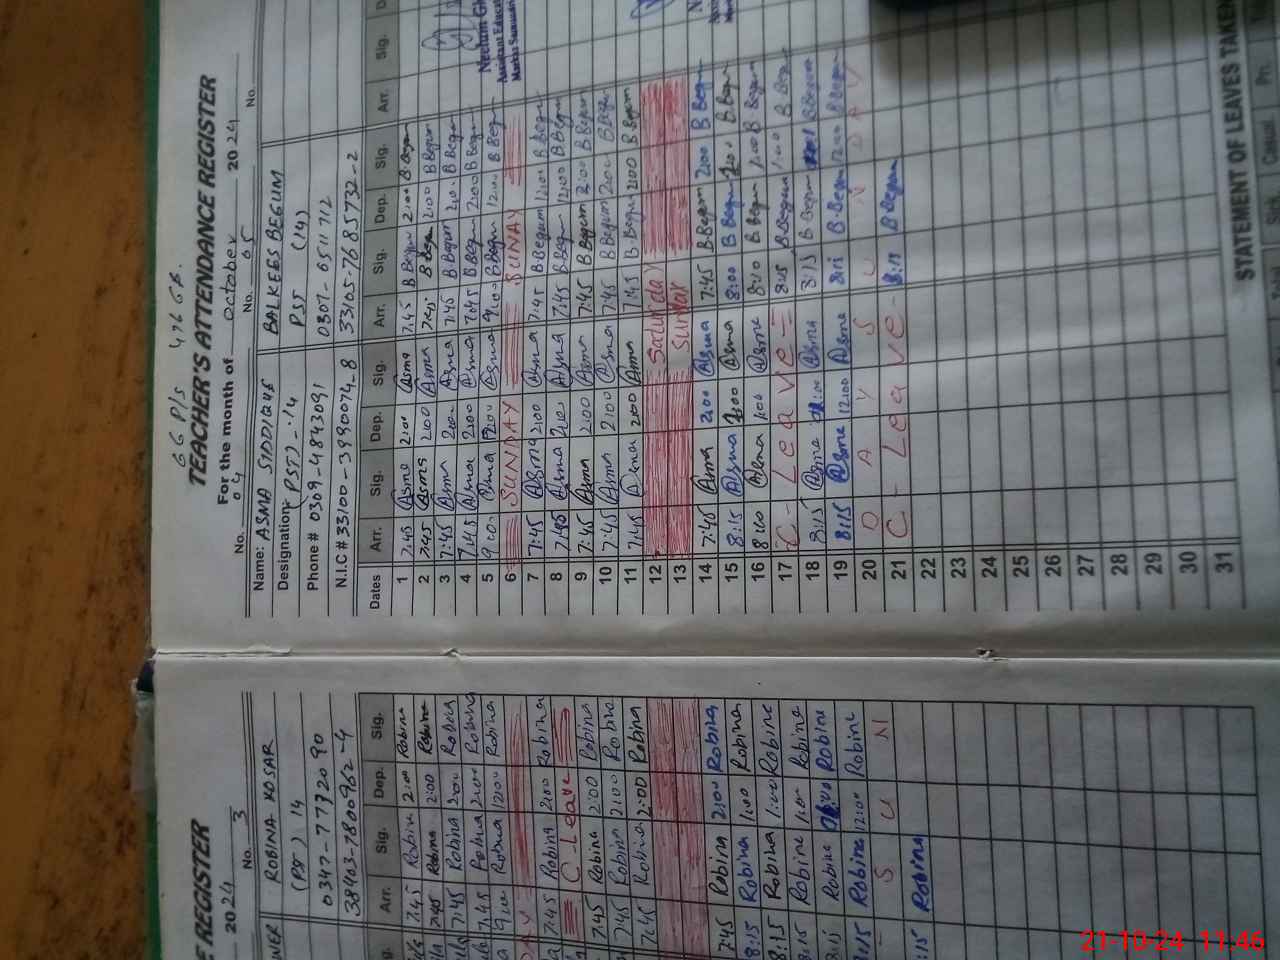 GGP/S 476 GB.
TEACHER'S ATTENDANCE REGISTER
For the month of October 2024
No. 04 No. 05 No.
Name: ASMA SIDDIQUE BALKEES BEGUM
Designation: PST) - 14 PST (14)
Phone # 0309-4843091 0307-6511712
N.I.C # 33100-3990074-8 33105-7685732-2
Dates Arr. Sig. Dep. Sig. Arr. Sig. Dep. Sig. Arr. Sig.
1 7:45 Asma 2:00 Asma 7:45 B Begum 2:00 B Begum
2 7:45 Asma 2:00 Asma 7:45 B Begum 2:00 B Begum
3 7:45 Asma 2:00 Asma 7:45 B Begum 2:00 B Begum
4 7:45 Asma 2:00 Asma 7:45 B Begum 2:00 B Begum
5 9:00 Asma 12:00 Asma 9:00 B Begum 12:00 B Begum
6 SUNDAY SUNAY
7 7:45 Asma 2:00 Asma 7:45 B Begum 12:00 B Begum
8 7:45 Asma 2:00 Asma 7:45 B Begum 12:00 B Begum
9 7:45 Asma 2:00 Asma 7:45 B Begum 2:00 B Begum
10 7:45 Asma 2:00 Asma 7:45 B Begum 2:00 B Begum
11 7:45 Asma 2:00 Asma 7:45 B Begum 2:00 B Begum
12 Saturday
13 Sunday
14 7:45 Asma 2:00 Asma 7:45 B Begum 2:00 B Begum
15 8:15 Asma 1:00 Asma 8:00 B Begum 1:00 B Begum
16 8:00 Asma 1:00 Asma 8:10 B Begum 1:00 B Begum
17 C - Leave - 8:15 B Begum 1:00 B Begum
18 8:15 Asma 12:00 Asma 8:15 B Begum B Begum
19 8:15 Asma 12:00 Asma 8:15 B Begum 12:00 B Begum
20 D A Y S U N D A Y
21 C - Leave - 8:15 B Begum
22
23
24
25
26
27
28
29
30
31
STATEMENT OF LEAVES TAKEN
Casual
Neelum
Assistant Educa
Markaz
E REGISTER
2024 No. 3
ROBINA KOSAR
(PST) 14
0347-7772090
38403-7800962-4
Arr. Sig. Dep. Sig.
7:45 Robina 2:00 Robina
7:45 Robina 2:00 Robina
7:45 Robina 2:00 Robina
7:45 Robina 2:00 Robina
9:00 Robina 12:00 Robina
7:45 Robina 2:00 Robina
C-Leave
7:45 Robina 2:00 Robina
7:45 Robina 2:00 Robina
7:45 Robina 2:00 Robina
7:45 Robina 2:00 Robina
8:15 Robina 1:00 Robina
8:15 Robina 1:00 Robine
8:15 Robine 1:00 Robine
8:15 Robine Robine
8:15 Robine 12:00 Robine
S U N
8:15 Robina
21-10-24 11:46